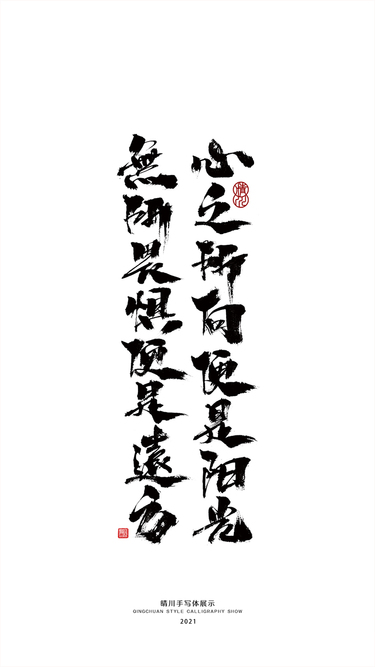 心之所向便是阳光
晴川
無所畏惧便是遠方
晴川手写体展示
QINGCHUAN STYLE CALLIGRAPHY SHOW
2021